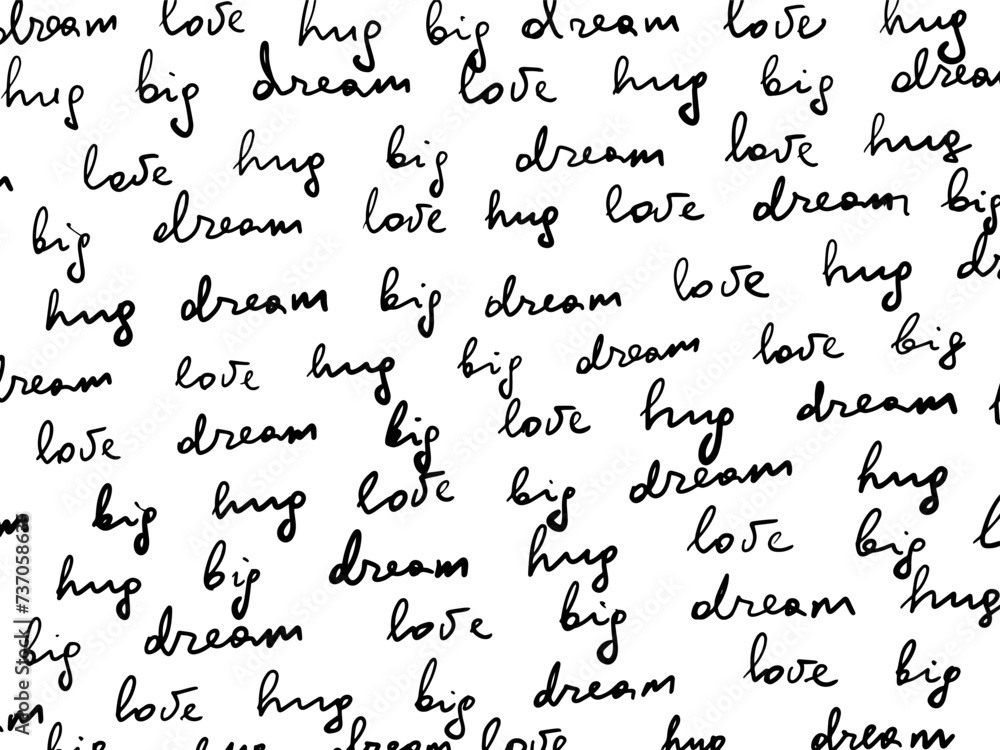 dream love hug big dream love hug
hug big dream love hug big dream
love hug big dream love hug
big dream love hug love dream big
hug dream big dream love hug
dream love hug big dream love big
love dream big love hug dream
big hug love big dream hug
hug big dream hug love big
big dream love big dream hug
love hug big dream love big
big hug dream love hug dream
Adobe Stock | #737058626